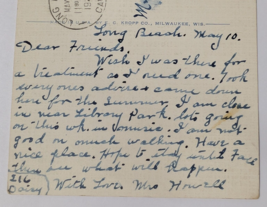 LONG
MAY
CAL
E. A. KROPP CO., MILWAUKEE, WIS.
Long Beach. May 10.
Dear Friends.
Wish I was there for
a treatment as I need one. Took
every ones advice & came down
here for the Summer. I am close
in near Library Park. lots going
on this wk. in I am not
good on much walking. Have a
nice place. Hope to stay until Fall
then see what will happen.
216
Daisy
With Love, Mrs Howell